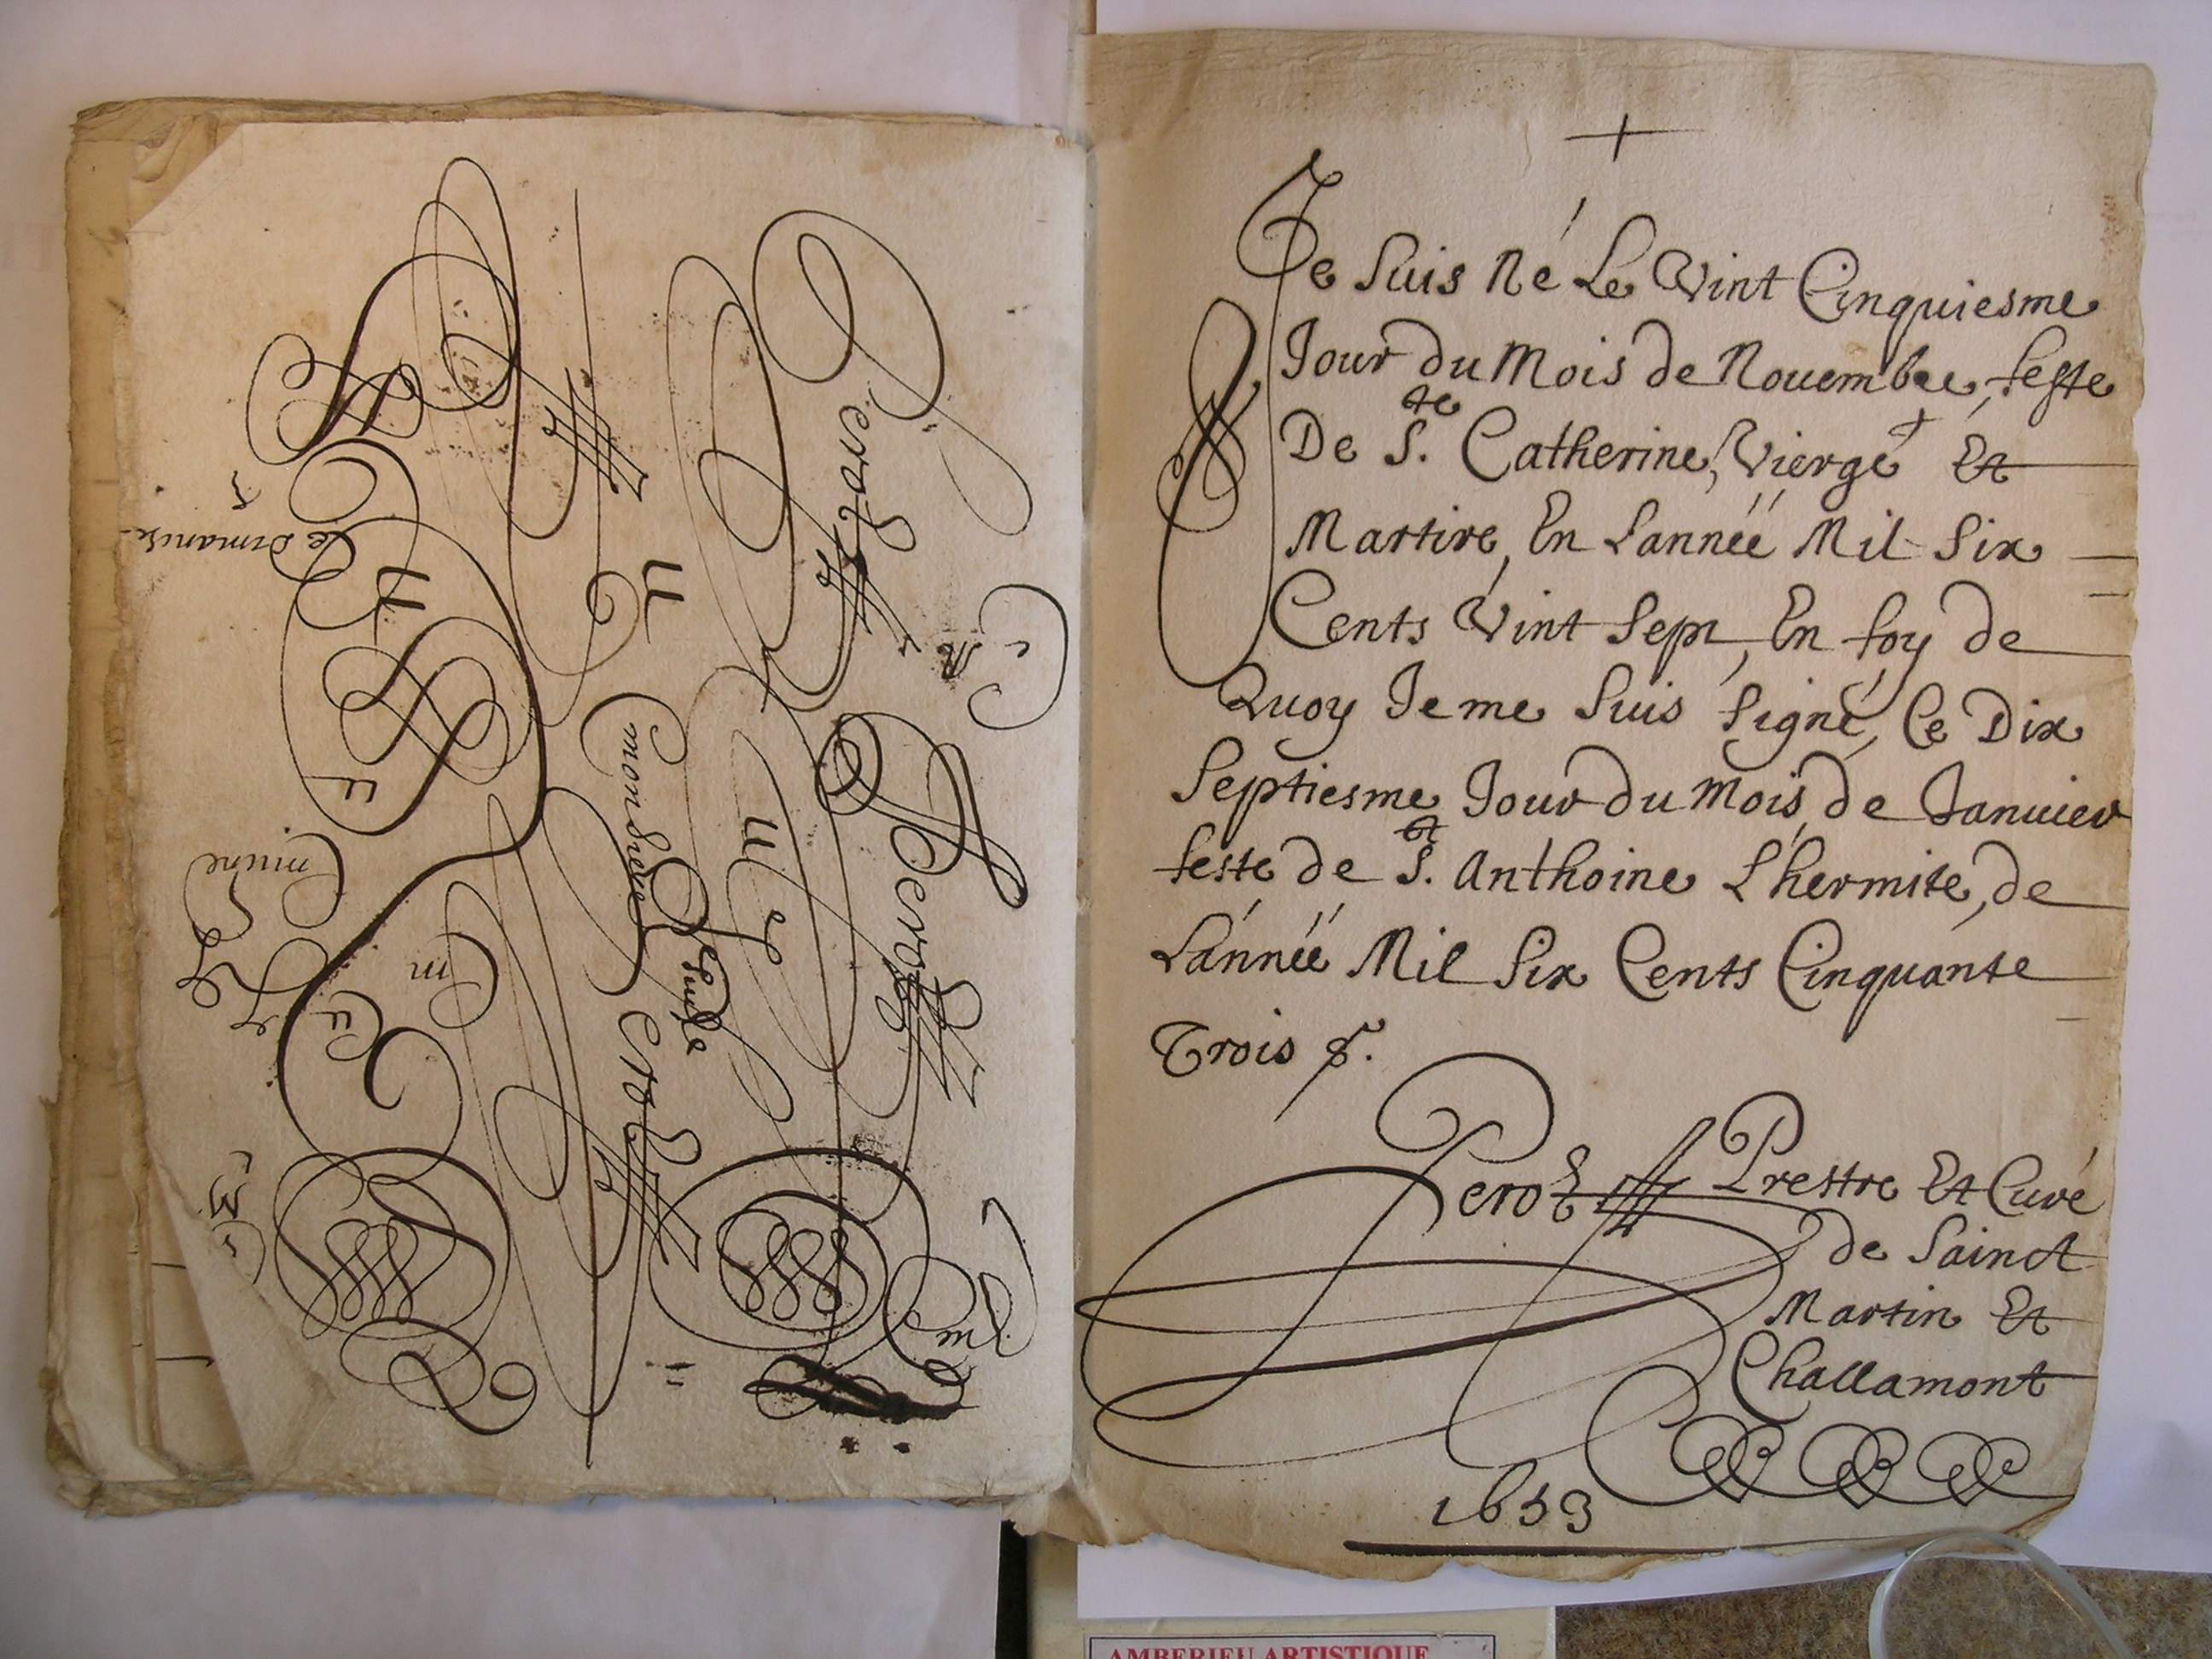 Perotz
Perotz
Monsieur
Perotz
Seule
Le Dimanche
Je Suis Né Le Vint Cinquiesme
Jour du Mois de Nouembre, feste
De S.te Catherine, Vierge Et
Martire, En Lannéé Mil Six
Cents Vint Sept, En foy de
Quoy Je me Suis Signé, Ce Dix
Septiesme Jour du Mois de Januier
feste de S.ct Anthoine L'hermite, de
L'annéé Mil Six Cents Cinquante
Trois
Perotz Prestre Et Curé
de Sainct
Martin Et
Challamont
1653
AMBERIEU ARTISTIQUE